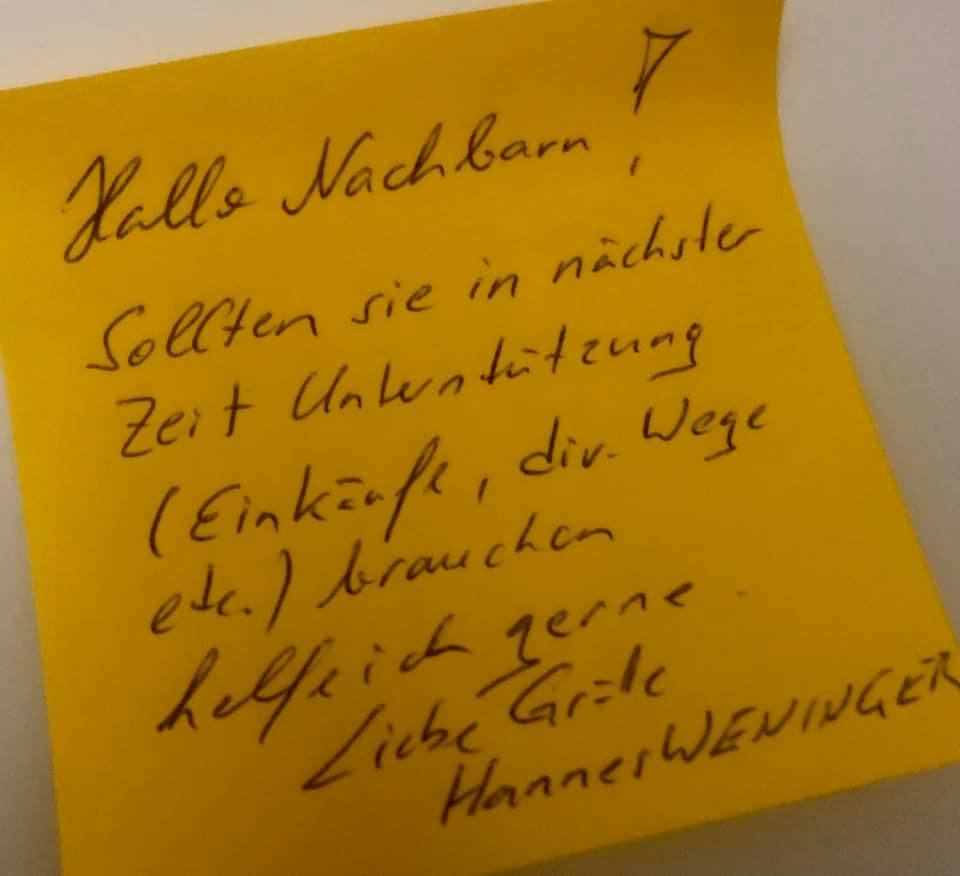 Hallo Nachbarn!
Sollten sie in nächster
Zeit Unterstützung
(Einkäufe, div. Wege
etc.) brauchen
helfe ich gerne.
Liebe Grüße
Hannes WENINGER